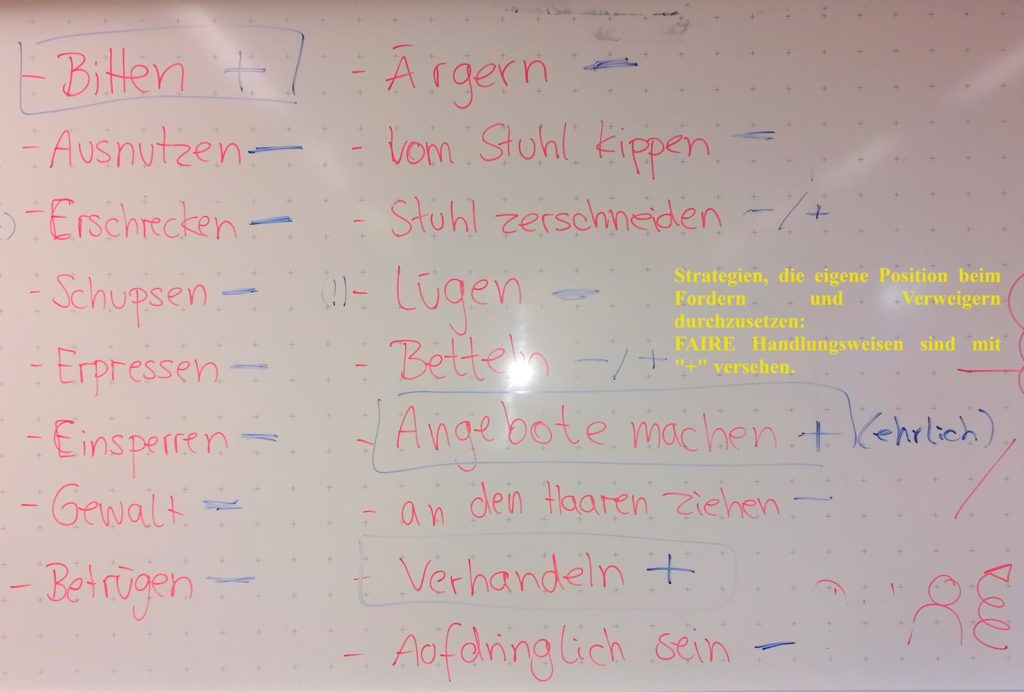 - Bitten +
- Ausnutzen -
- Erschrecken -
- Schupsen -
- Erpressen -
- Einsperren -
- Gewalt -
- Betrügen -
- Ärgern -
- Vom Stuhl kippen -
- Stuhl zerschneiden -/+
(!) - Lügen -
- Betteln -/+
- Angebote machen + (ehrlich)
- an den Haaren ziehen -
- Verhandeln +
- Aufdringlich sein -
Strategien, die eigene Position beim
Fordern und Verweigern
durchzusetzen:
FAIRE Handlungsweisen sind mit
"+" versehen.